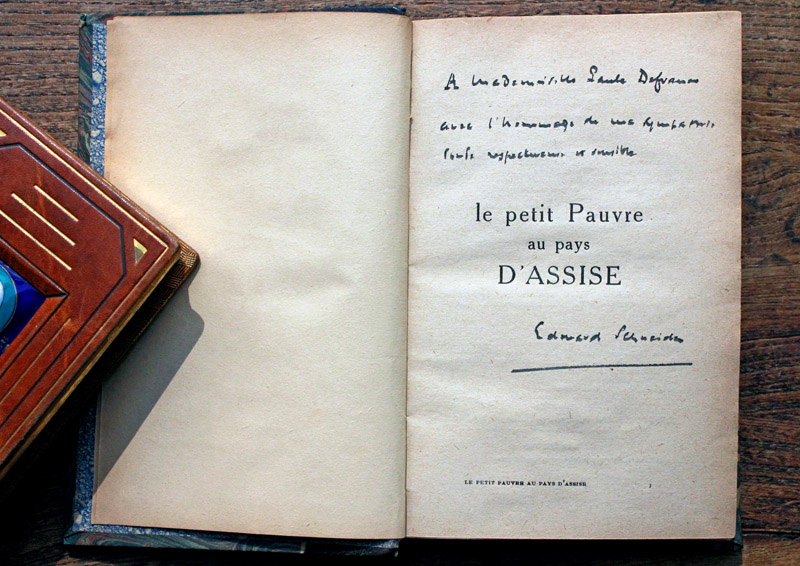 A Mademoiselle Paule Defrance
avec l'hommage de ma sympathie
toute respectueuse et sensible
le petit Pauvre
au pays
D'ASSISE
Edouard Schneider
LE PETIT PAUVRE AU PAYS D'ASSISE 1